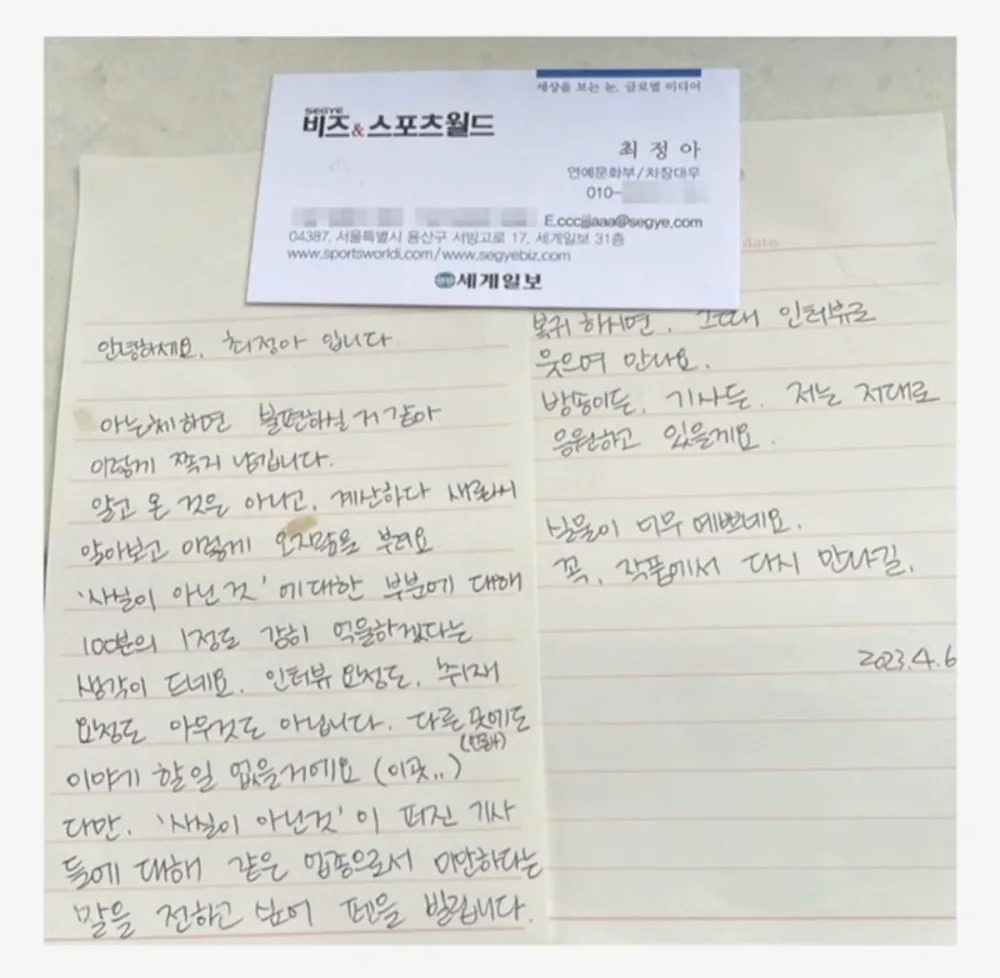 세상을 보는 눈, 글로벌 미디어
SEGYE
비즈&스포츠월드
최 정 아
연예문화부/차장대우
010-
E.cccjjjaaa@segye.com
04387. 서울특별시 용산구 서빙고로 17, 세계일보 31층
www.sportsworldi.com/www.segyebiz.com
세계일보
안녕하세요. 최정아 입니다
아는체하면 불편하실거 같아
이렇게 쪽지 남깁니다.
알고 온 것은 아니고, 계산하다 새로나서
알아보고 이렇게 오지랖을 부려요
'사실이 아닌 것'에 대한 부분에 대해
100분의 1정도 감히 억울하겠다는
생각이 드네요. 인터뷰 요청도, 취재
요청도 아무것도 아닙니다. 다른 곳에도
이야기 할일 없을거에요 (이곳..)
다만, '사실이 아닌것'이 퍼진 기사
들에 대해 같은 업종으로서 미안하다는
말을 전하고 싶어 펜을 빌립니다.
date
복귀 하시면. 그때 인터뷰로
웃으며 만나요.
방송이든, 기사든. 저는 저대로
응원하고 있을게요.
실물이 너무 예쁘네요.
꼭, 작품에서 다시 만나길,
2023.4.6